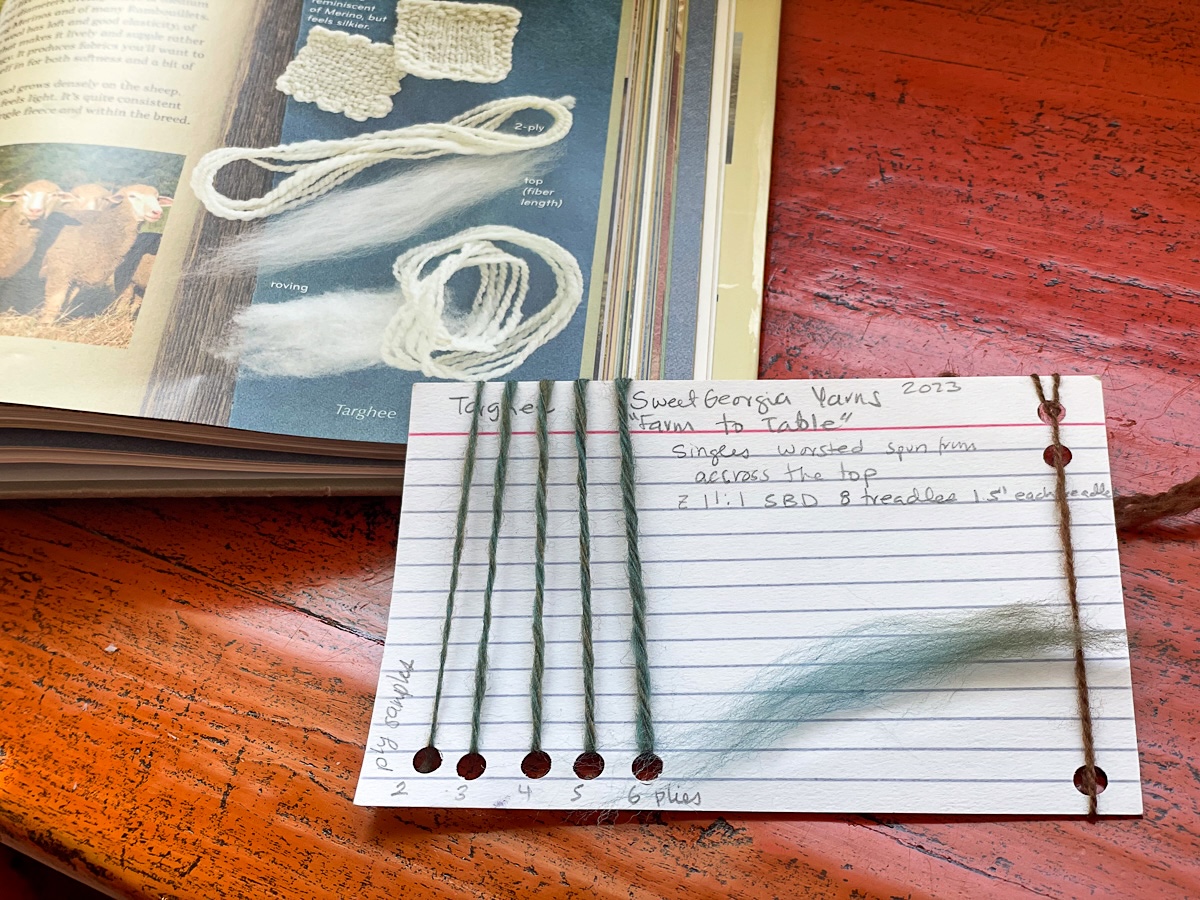 Merinos and of many Rambouillets.
wool has loft and good elasticity, of
that makes it lively and supple rather
It produces fabrics you'll want to
in for both softness and a bit of
grows densely on the sheep.
feels light. It's quite consistent
fleece and within the breed.
reminiscent
of Merino, but
feels silkier.
2-ply
top
(fiber
length)
roving
Targhee
Targhee
SweetGeorgia Yarns 2023
"Farm to Table"
Singles worsted spun from
accross the top
Z 11:1 SBD 8 treadles 1.5" each treadle
ply samples
2 3 4 5 6 plies